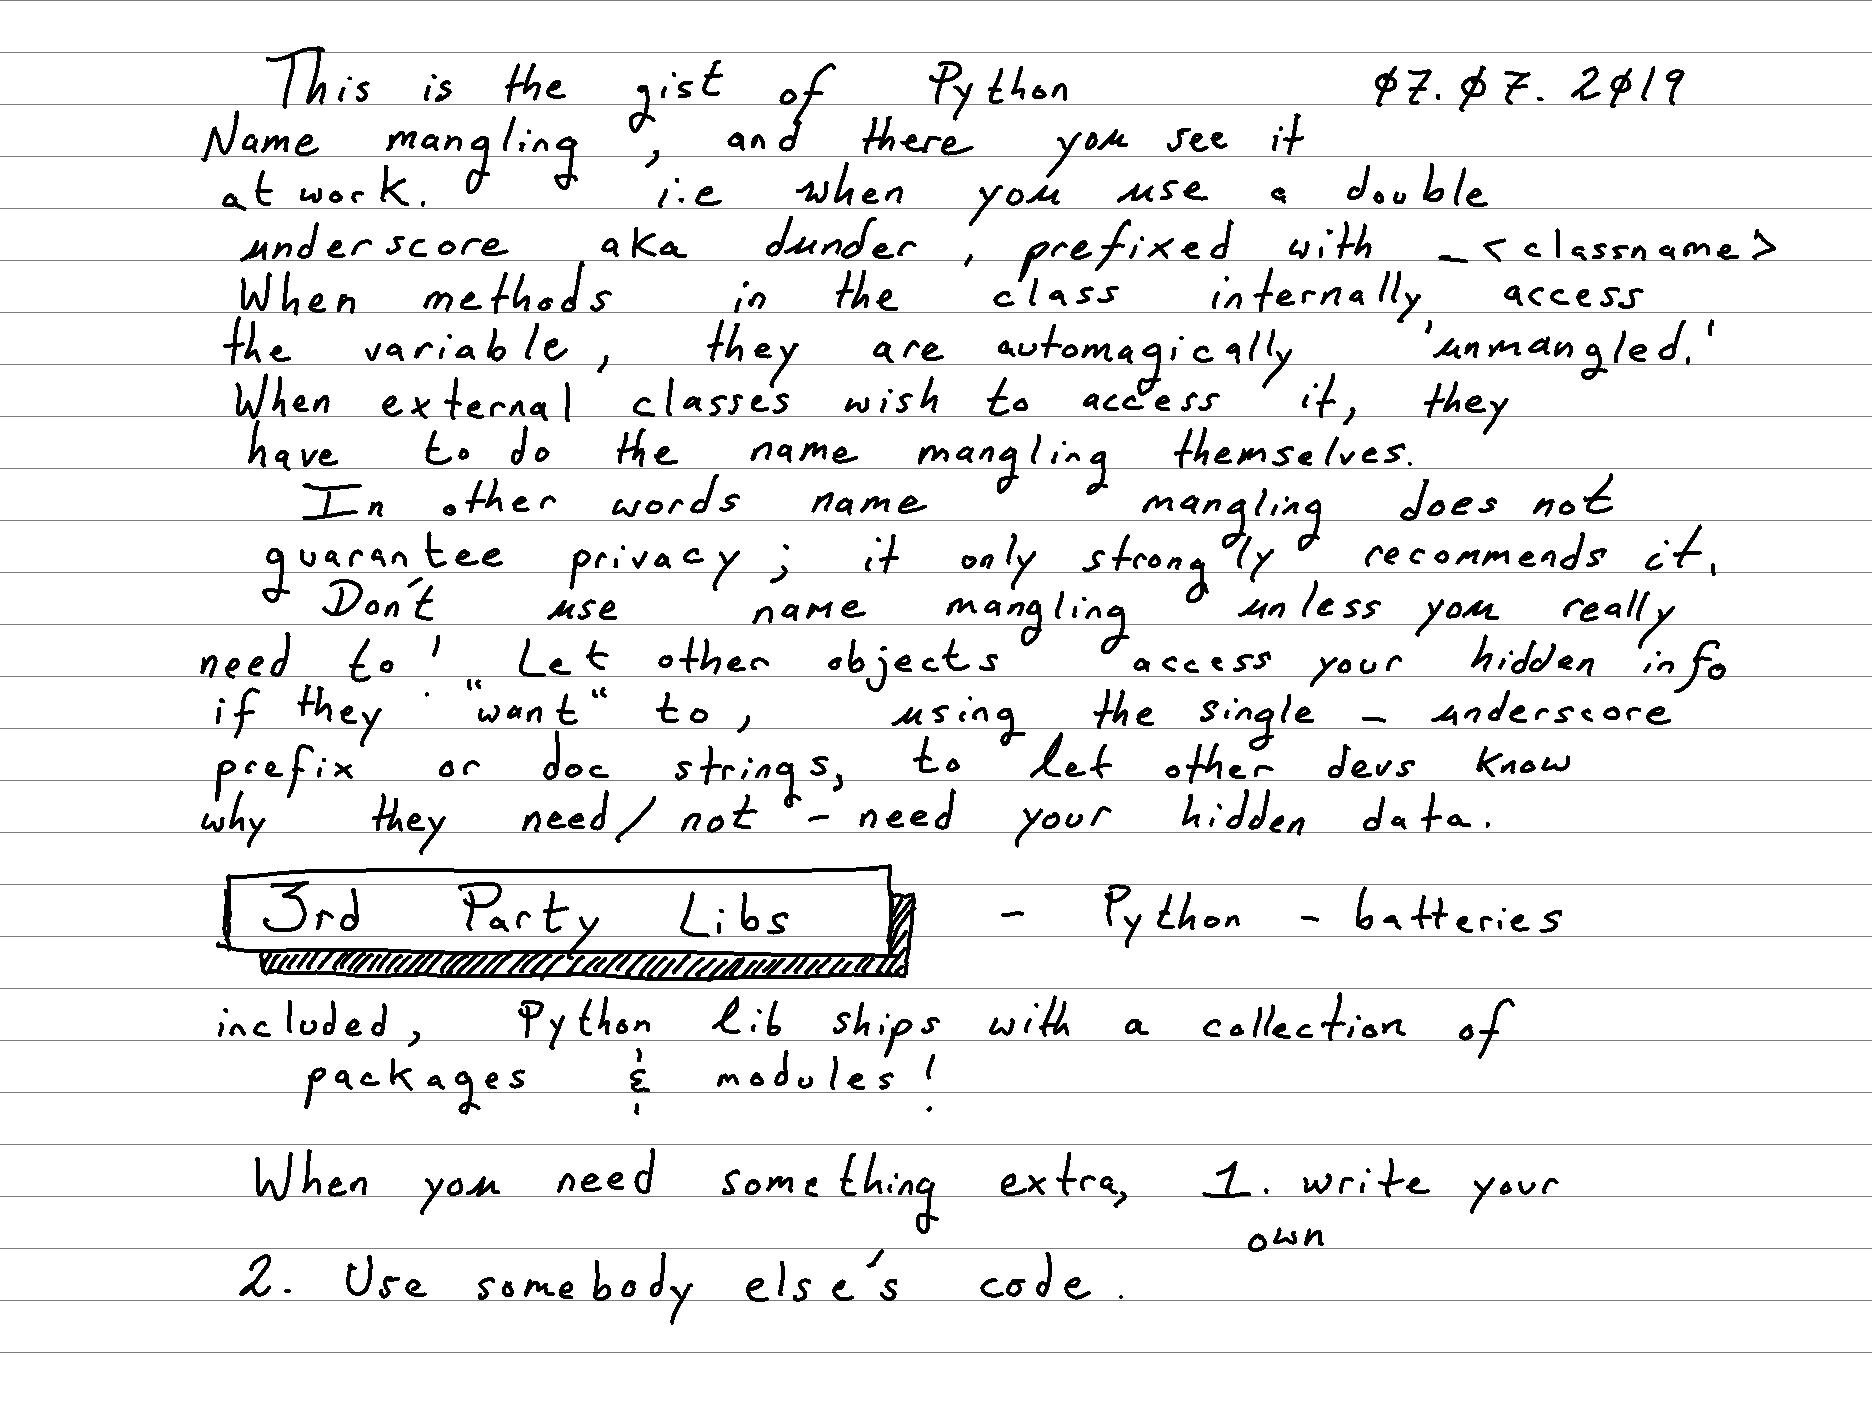 This is the gist of Python 07.07.2019
Name mangling, and there you see it
at work. i.e when you use a double
underscore aka dunder, prefixed with _<classname>
When methods in the class internally access
the variable, they are automagically 'unmangled.'
When external classes wish to access it, they
have to do the name mangling themselves.
In other words name mangling does not
guarantee privacy; it only strongly recommends it.
Don't use name mangling unless you really
need to! Let other objects access your hidden info
if they "want" to, using the single - underscore
prefix or doc strings, to let other devs know
why they need/not-need your hidden data.
3rd Party Libs - Python - batteries
included, Python lib ships with a collection of
packages & modules!
When you need something extra, 1. write your
own
2. Use somebody else's code.